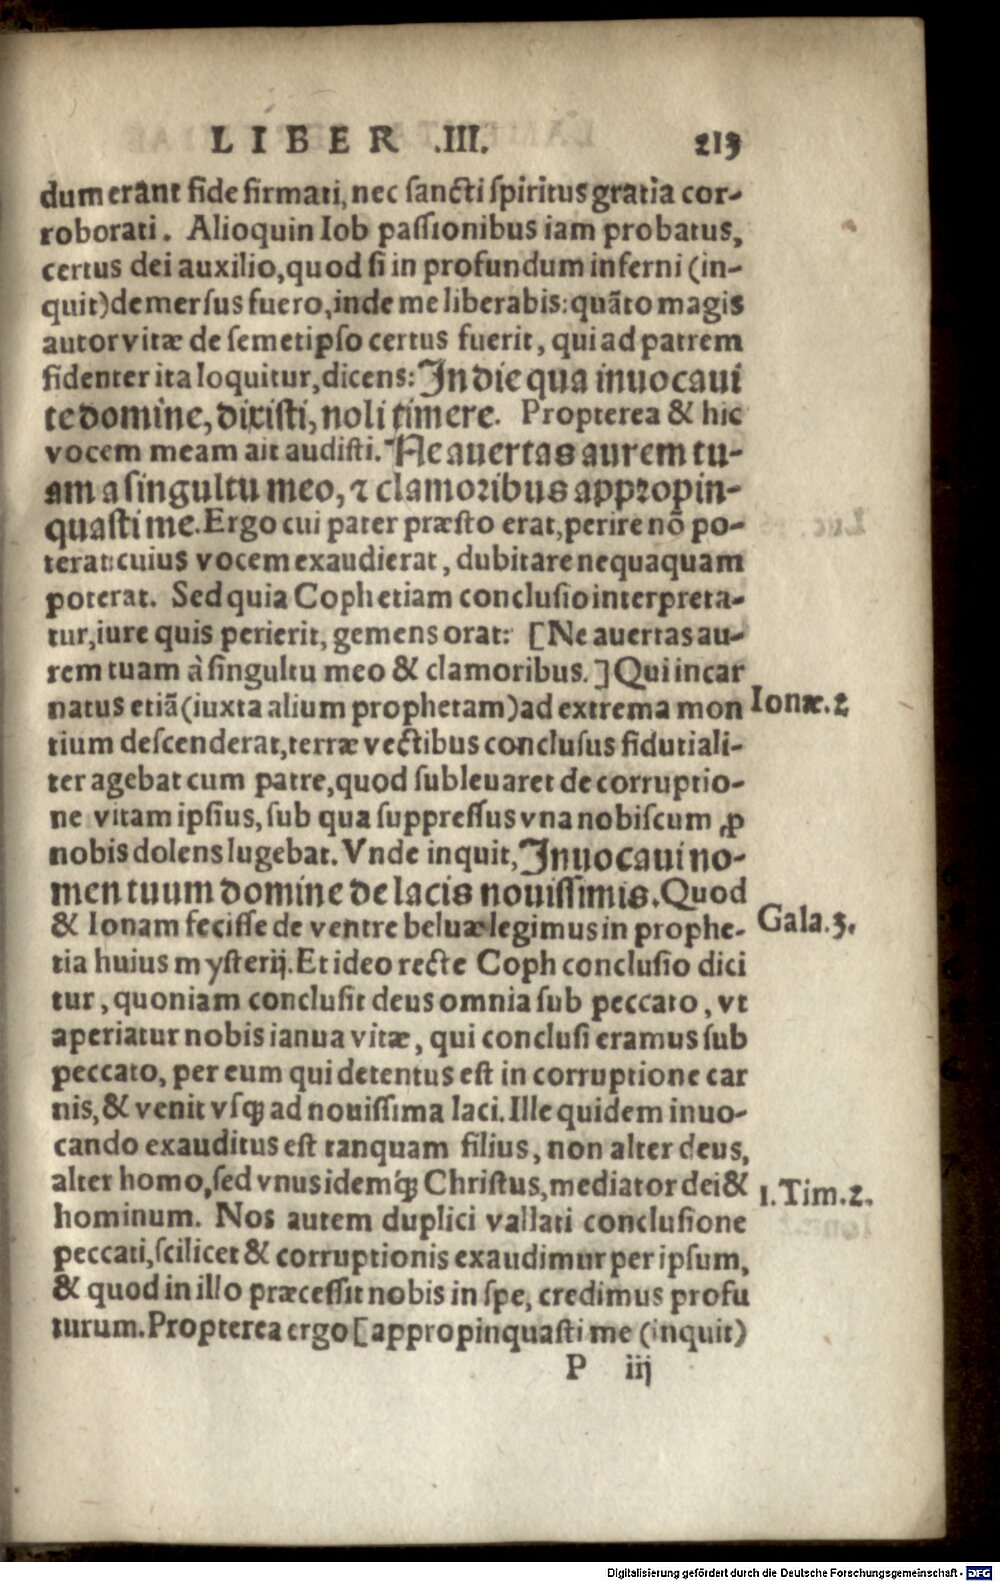 LIBER .III. 213
dum erant fide firmati, nec sancti spiritus gratia cor-
roborati. Alioquin Iob passionibus iam probatus,
certus dei auxilio, quod si in profundum inferni (in-
quit) demersus fuero, inde me liberabis: quãto magis
autor vitæ de semetipso certus fuerit, qui ad patrem
fidenter ita loquitur, dicens: In die qua inuocaui
te domine, dixisti, noli timere. Propterea & hic
vocem meam ait audisti. Ne auertas aurem tu-
am a singultu meo, ⁊ clamoribus appropin-
quasti me. Ergo cui pater præsto erat, perire nõ po-
terat: cuius vocem exaudierat, dubitare nequaquam
poterat. Sed quia Coph etiam conclusio interpreta-
tur, iure quis perierit, gemens orat: [Ne auertas au-
rem tuam à singultu meo & clamoribus.] Qui incar
natus etiã (iuxta alium prophetam) ad extrema mon Ionæ.2
tium descenderat, terræ vectibus conclusus fidutiali-
ter agebat cum patre, quod subleuaret de corruptio-
ne vitam ipsius, sub qua suppressus vna nobiscum ꝓ
nobis dolens lugebat. Vnde inquit, Inuocaui no-
men tuum domine de lacis nouissimis. Quod
& Ionam fecisse de ventre beluæ legimus in prophe- Gala.3.
tia huius mysterij. Et ideo recte Coph conclusio dici
tur, quoniam conclusit deus omnia sub peccato, vt
aperiatur nobis ianua vitæ, qui conclusi eramus sub
peccato, per eum qui detentus est in corruptione car
nis, & venit vsqꝫ ad nouissima laci. Ille quidem inuo-
cando exauditus est tanquam filius, non alter deus,
alter homo, sed vnus idemq́ꝫ Christus, mediator dei & 1.Tim.2.
hominum. Nos autem duplici vallati conclusione
peccati, scilicet & corruptionis exaudimur per ipsum,
& quod in illo præcessit nobis in spe, credimus profu
turum. Propterea ergo [appropinquasti me (inquit)
P iij
Digitalisierung gefördert durch die Deutsche Forschungsgemeinschaft - DFG